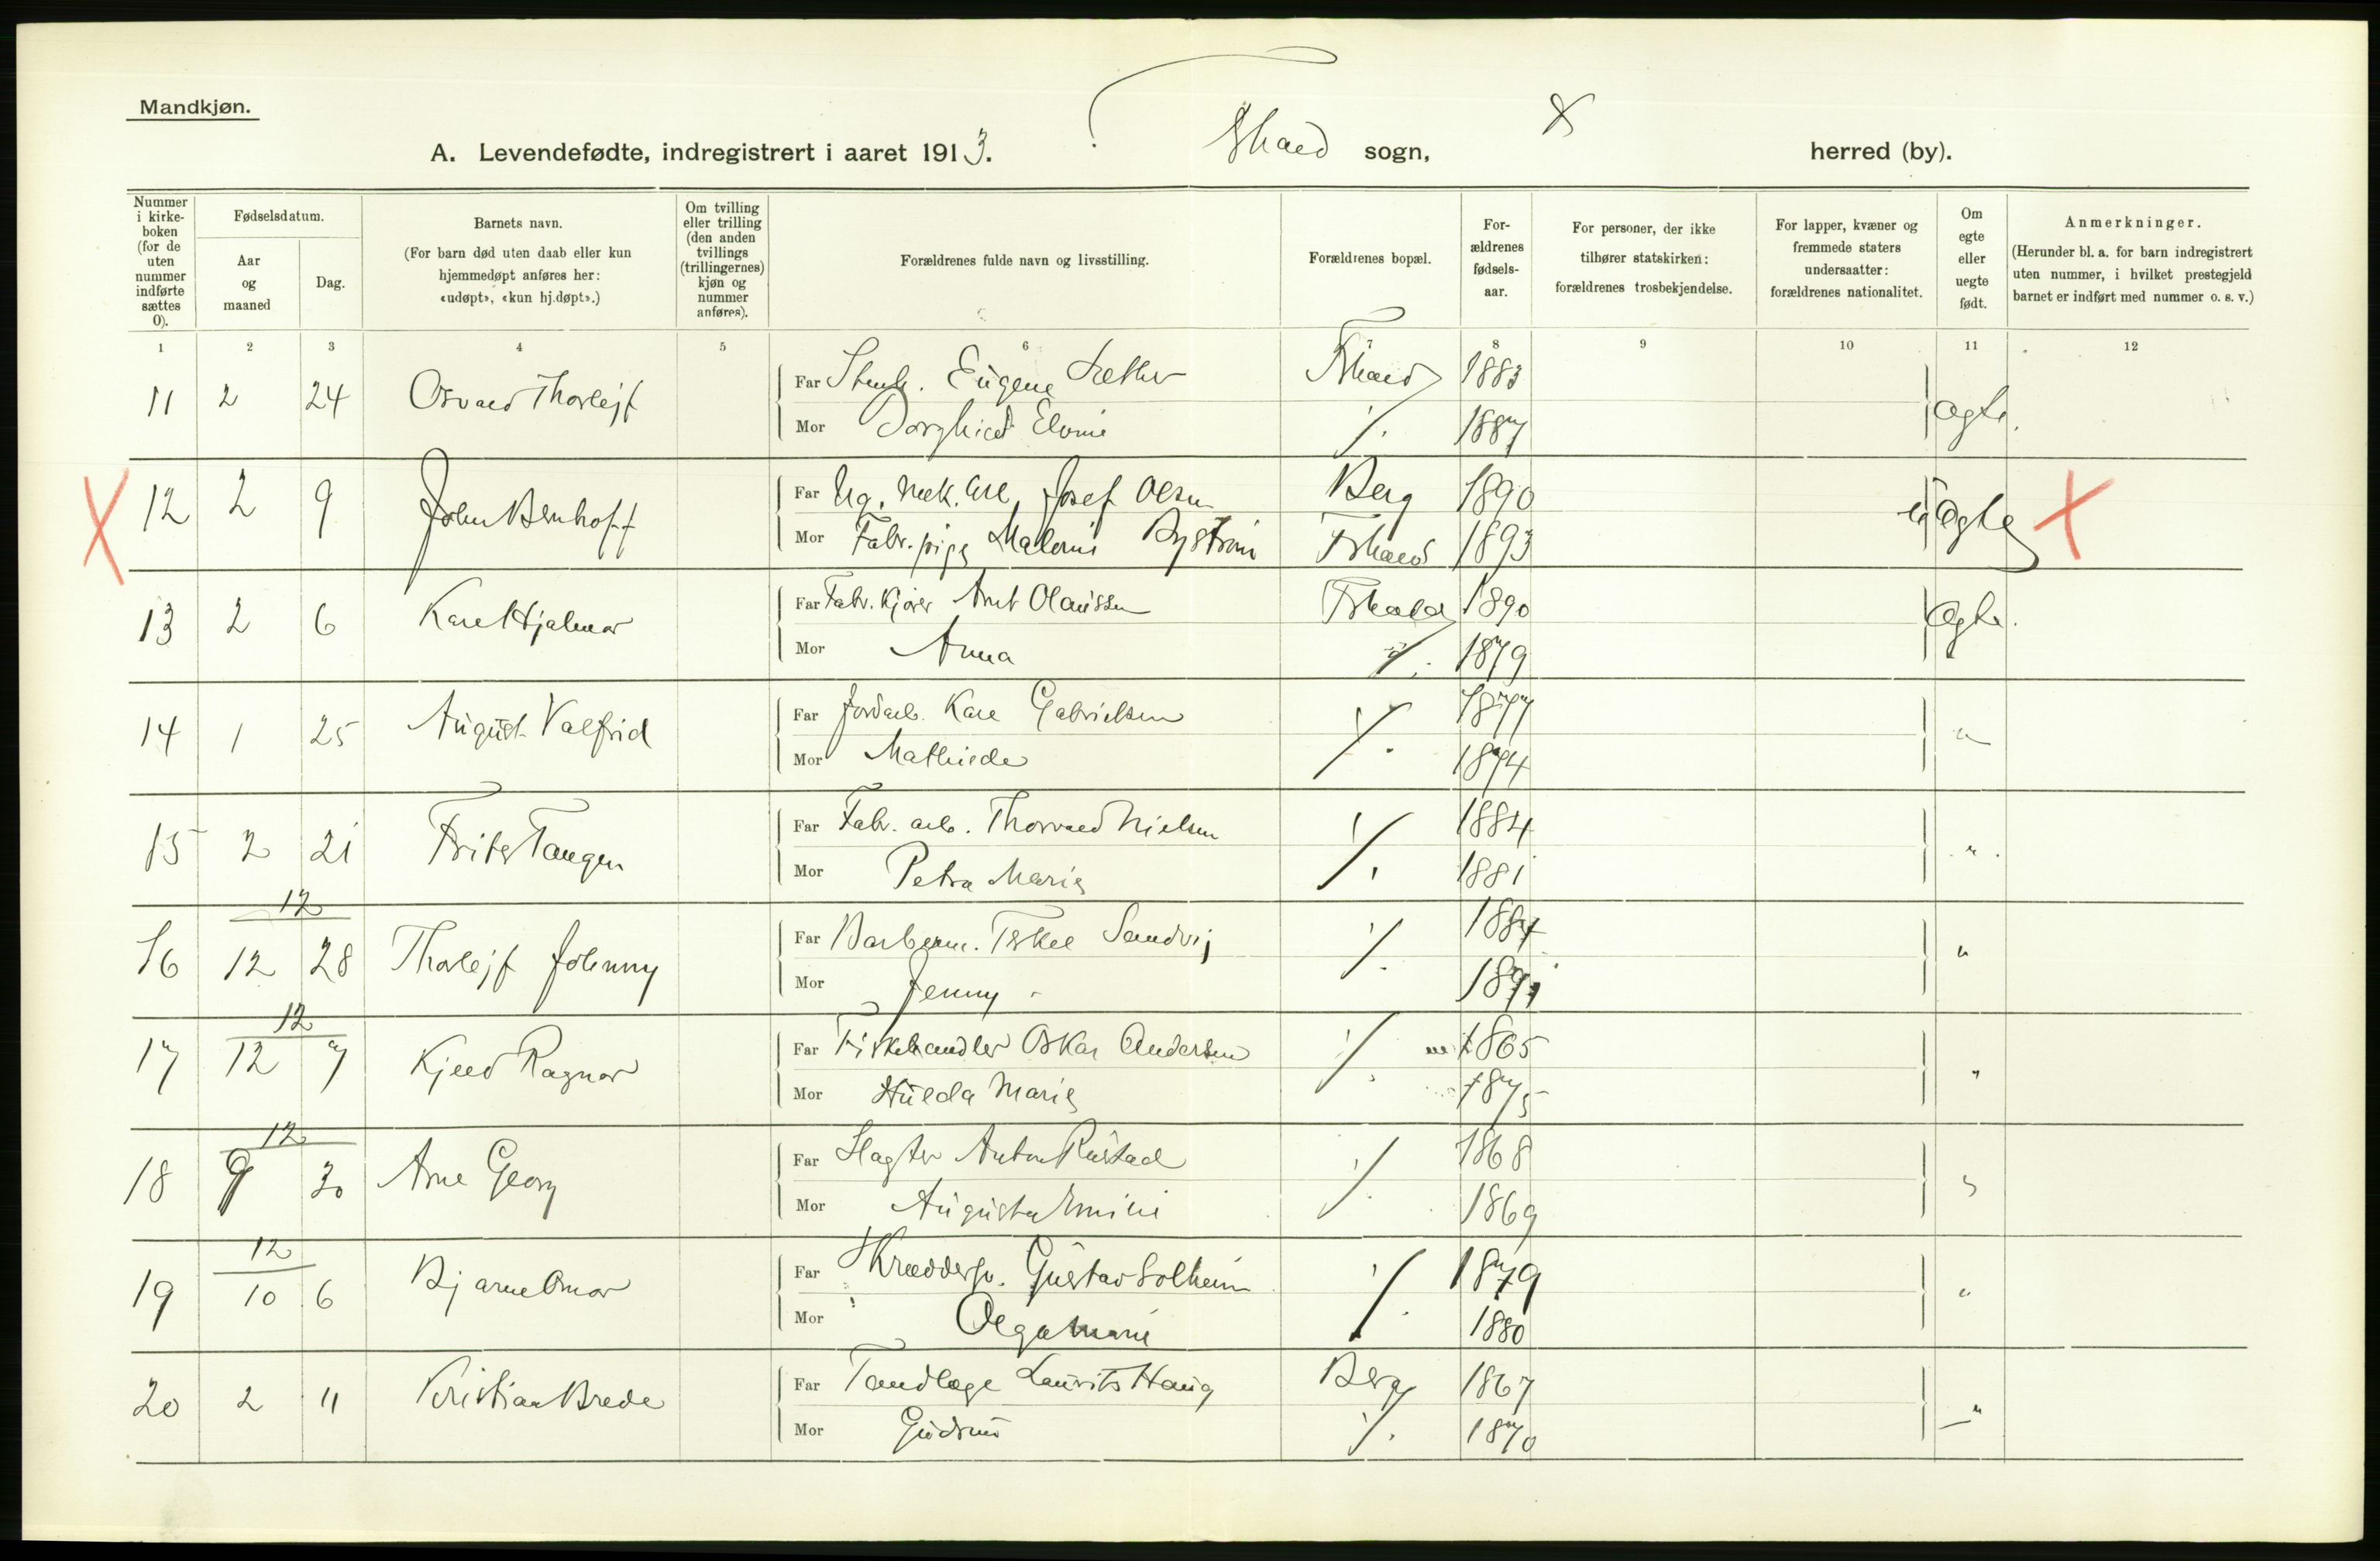 Mandkjøn.
A. Levendefødte, indregistrert i aaret 1913. Fhald sogn, herred (by).
Nummer i kirkeboken (for de uten nummer indførte sættes 0).
Fødselsdatum.
Aar og maaned
Dag.
Barnets navn.
(For barn død uten daab eller kun hjemmedøpt anføres her: «udøpt», «kun hj.døpt».)
Om tvilling eller trilling (den anden tvillings (trillingernes) kjøn og nummer anføres).
Forældrenes fulde navn og livsstilling.
Forældrenes bopæl.
Forældrenes fødselsaar.
For personer, der ikke tilhører statskirken: forældrenes trosbekjendelse.
For lapper, kvæner og fremmede staters undersaatter: forældrenes nationalitet.
Om egte eller uegte født.
Anmerkninger.
(Herunder bl. a. for barn indregistrert uten nummer, i hvilket prestegjeld barnet er indført med nummer o. s. v.)
1 2 3 4 5 6 7 8 9 10 11 12
11 2 24 Osvald Thorlejf Far Stenh. Eugene Sæther Fhald 1883 ægte.
Mor Borghild Elvine ./. 1887
X 12 2 9 John Bernhoff Far Ug. mek. arb. Josef Olsen Berg 1890 uægte X
Mor Fabr. pige Malerni Bystrøm Fhald 1893
13 2 6 Karl Hjalmar Far Fabr. Kjører Arnt Olaussen Fhald 1890 ægte.
Mor Anna ./. 1879
14 1 25 August Valfrid Far Jordarb. Karl Gabrielsen ./. 1877 "
Mor Mathilde 1874
15 2 21 Fritz Tangen Far Fabr. arb. Thorvald Nielsen ./. 1884 "
Mor Petra Marie 1881
16 12 12 28 Thorlejf Johnny Far Barberm. Eskel Sandvij ./. 1884 "
Mor Jenny 1891
17 12 12 7 Kjeld Ragnar Far Fiskehandler Oskar Andersen ./. 1865 "
Mor Hulda Marie 1875
18 12 9 30 Arne Georg Far Slagter Anton Rustad ./. 1868 "
Mor Augusta Emilie 1869
19 12 10 6 Bjarne Omar Far Skræddersv. Gustav Solheim ./. 1879 "
Mor Olga Marie 1880
20 2 11 Kristian Brede Far Tandlæge Laurits Haug Berg 1867 "
Mor Gudrun ./. 1870